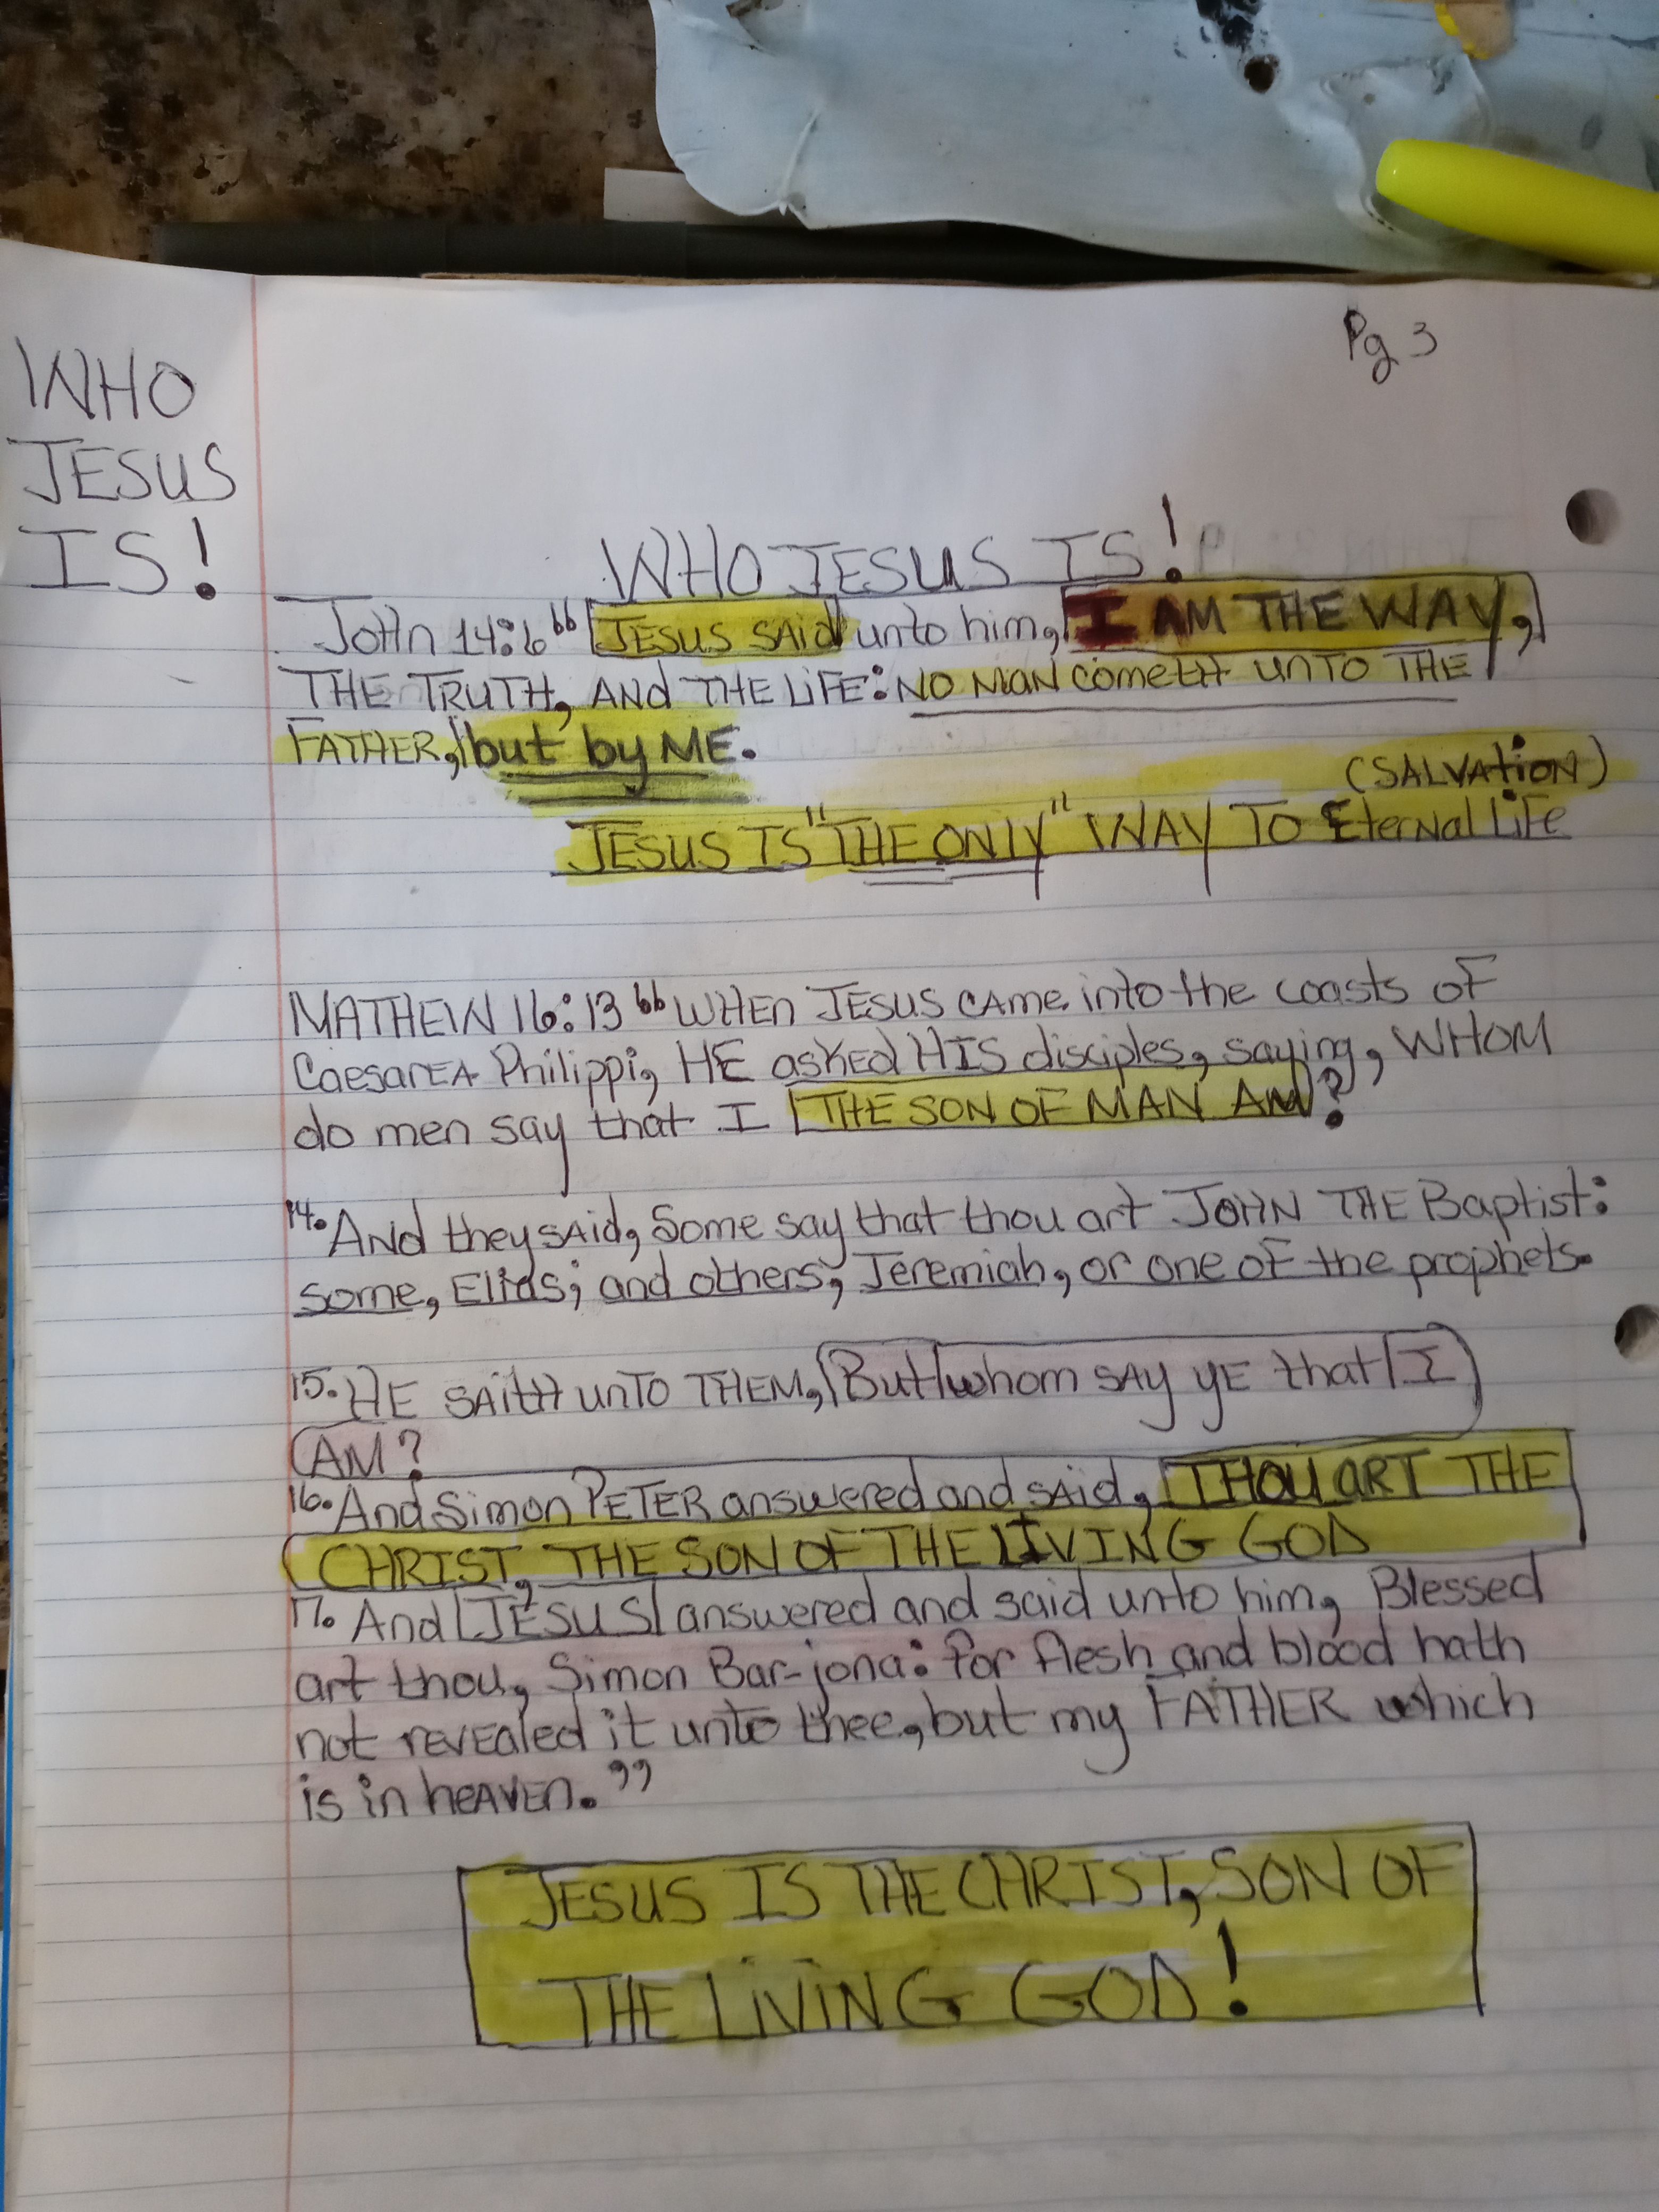 Pg 3
WHO
JESUS
IS!
WHO JESUS IS!
John 14:6 “JESUS SAid unto him, I AM THE WAY,
THE TRUTH, AND THE LiFE: NO MAN COMETH UNTO THE
FATHER, but by ME.
(SALVATION)
JESUS IS "THE ONLY" WAY TO Eternal LiFe
MATHEW 16:13 “WHEN JESUS CAme into the coasts of
CaesarEA Philippi, HE asked HIS disciples, saying, WHOM
do men say that I THE SON OF MAN AM?
14. And they said, Some say that thou art JOHN THE Baptist:
some, Elias; and others, Jeremiah, or one of the prophets.
15. HE SAITH UNTO THEM, But whom SAY YE that I
AM?
16. And Simon PETER answered and said, THOU ART THE
CHRIST, THE SON OF THE LIVING GOD
17. And JESUS answered and said unto him, Blessed
art thou, Simon Bar-jona: for flesh and blood hath
not revealed it unto thee, but my FATHER which
is in heaven.”
JESUS IS THE CHRIST, SON OF
THE LIVING GOD!